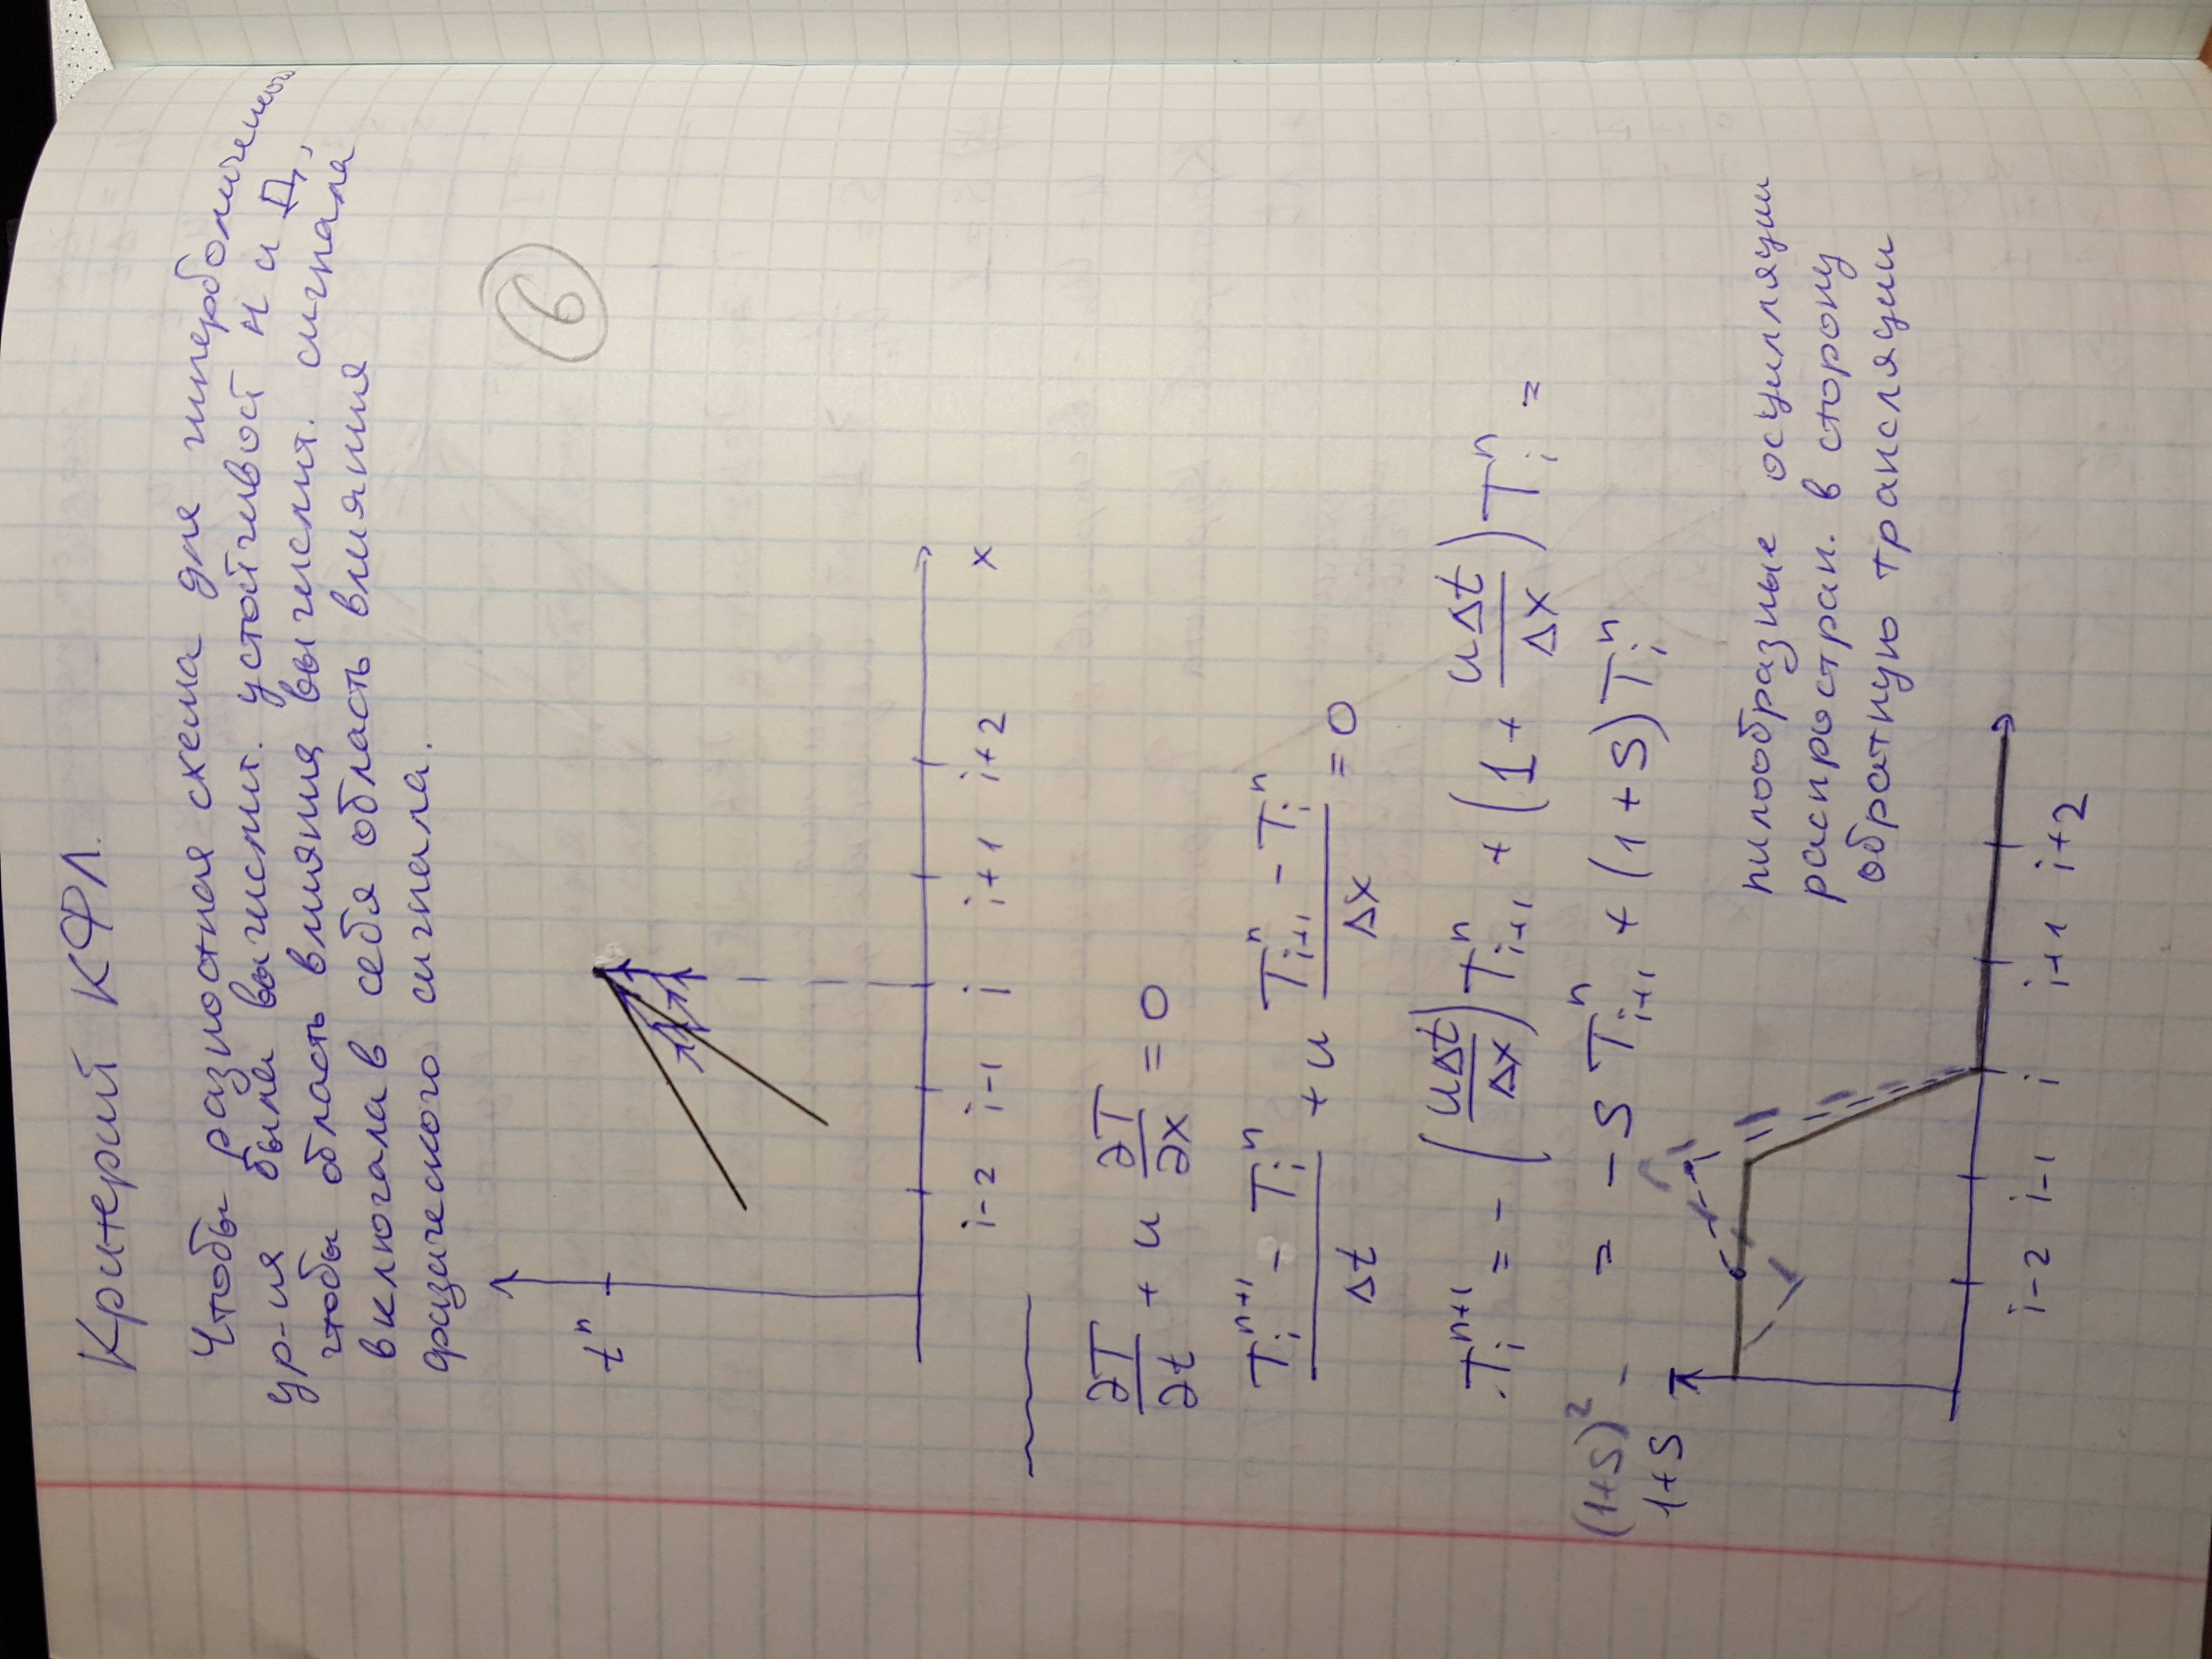 Критерий КФЛ.
Чтобы разностная схема для гиперболического
ур-ия была вычислит. устойчивой Н и Д,
чтобы область влияния вычислит. сигнала
включала в себя область влияния
физического сигнала.
6
tⁿ
i-2 i-1 i i+1 i+2 x
∂T/∂t + u ∂T/∂x = 0
(Tᵢⁿ⁺¹ - Tᵢⁿ)/Δt + u (Tᵢ₊₁ⁿ - Tᵢⁿ)/Δx = 0
Tᵢⁿ⁺¹ = - (uΔt/Δx) Tᵢ₊₁ⁿ + (1 + uΔt/Δx) Tᵢⁿ =
= - S Tᵢ₊₁ⁿ + (1 + S) Tᵢⁿ
(1+S)²
1+S
пилообразные осцилляции
распростран. в сторону
обратную трансляции
i-2 i-1 i i+1 i+2